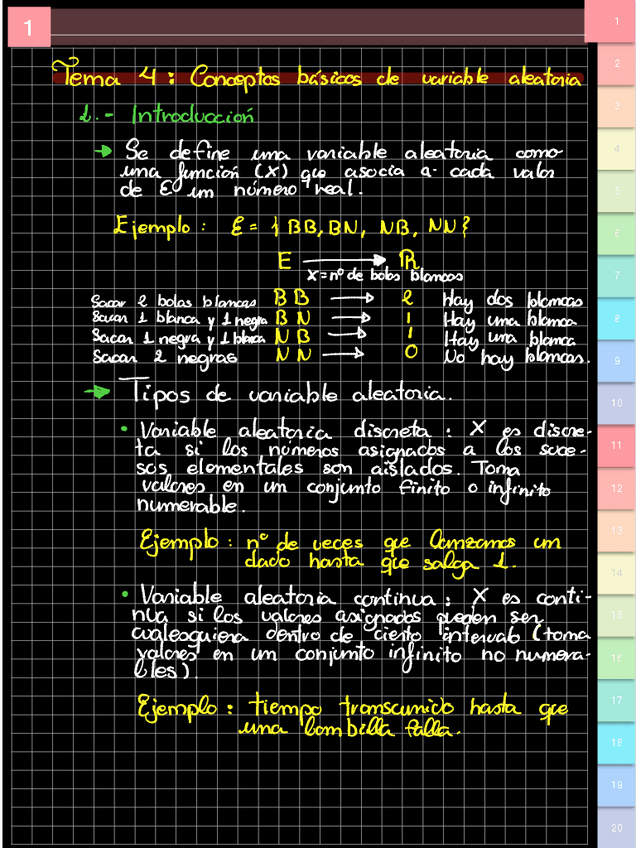 1
Tema 4: Conceptos básicos de variable aleatoria
1.- Introducción
→ Se define una variable aleatoria como
una función (X) que asocia a cada valor
de E un número real.
Ejemplo: E = { BB, BN, NB, NN }
E → ℝ
X = nº de bolas blancas
Sacar 2 bolas blancas BB → 2 Hay dos blancas
Sacar 1 blanca y 1 negra BN → 1 Hay una blanca
Sacar 1 negra y 1 blanca NB → 1 Hay una blanca
Sacar 2 negras NN → 0 No hay blancas.
→ Tipos de variable aleatoria.
• Variable aleatoria discreta: X es discre-
ta si los números asignados a los suce-
sos elementales son aislados. Toma
valores en un conjunto finito o infinito
numerable.
Ejemplo: nº de veces que lanzamos un
dado hasta que salga 1.
• Variable aleatoria continua: X es conti-
nua si los valores asignados pueden ser
cualesquiera dentro de cierto intervalo (toma
valores en un conjunto infinito no numera-
bles).
Ejemplo: tiempo transcurrido hasta que
una bombilla falla.
1
2
3
4
5
6
7
8
9
10
11
12
13
14
15
16
17
18
19
20